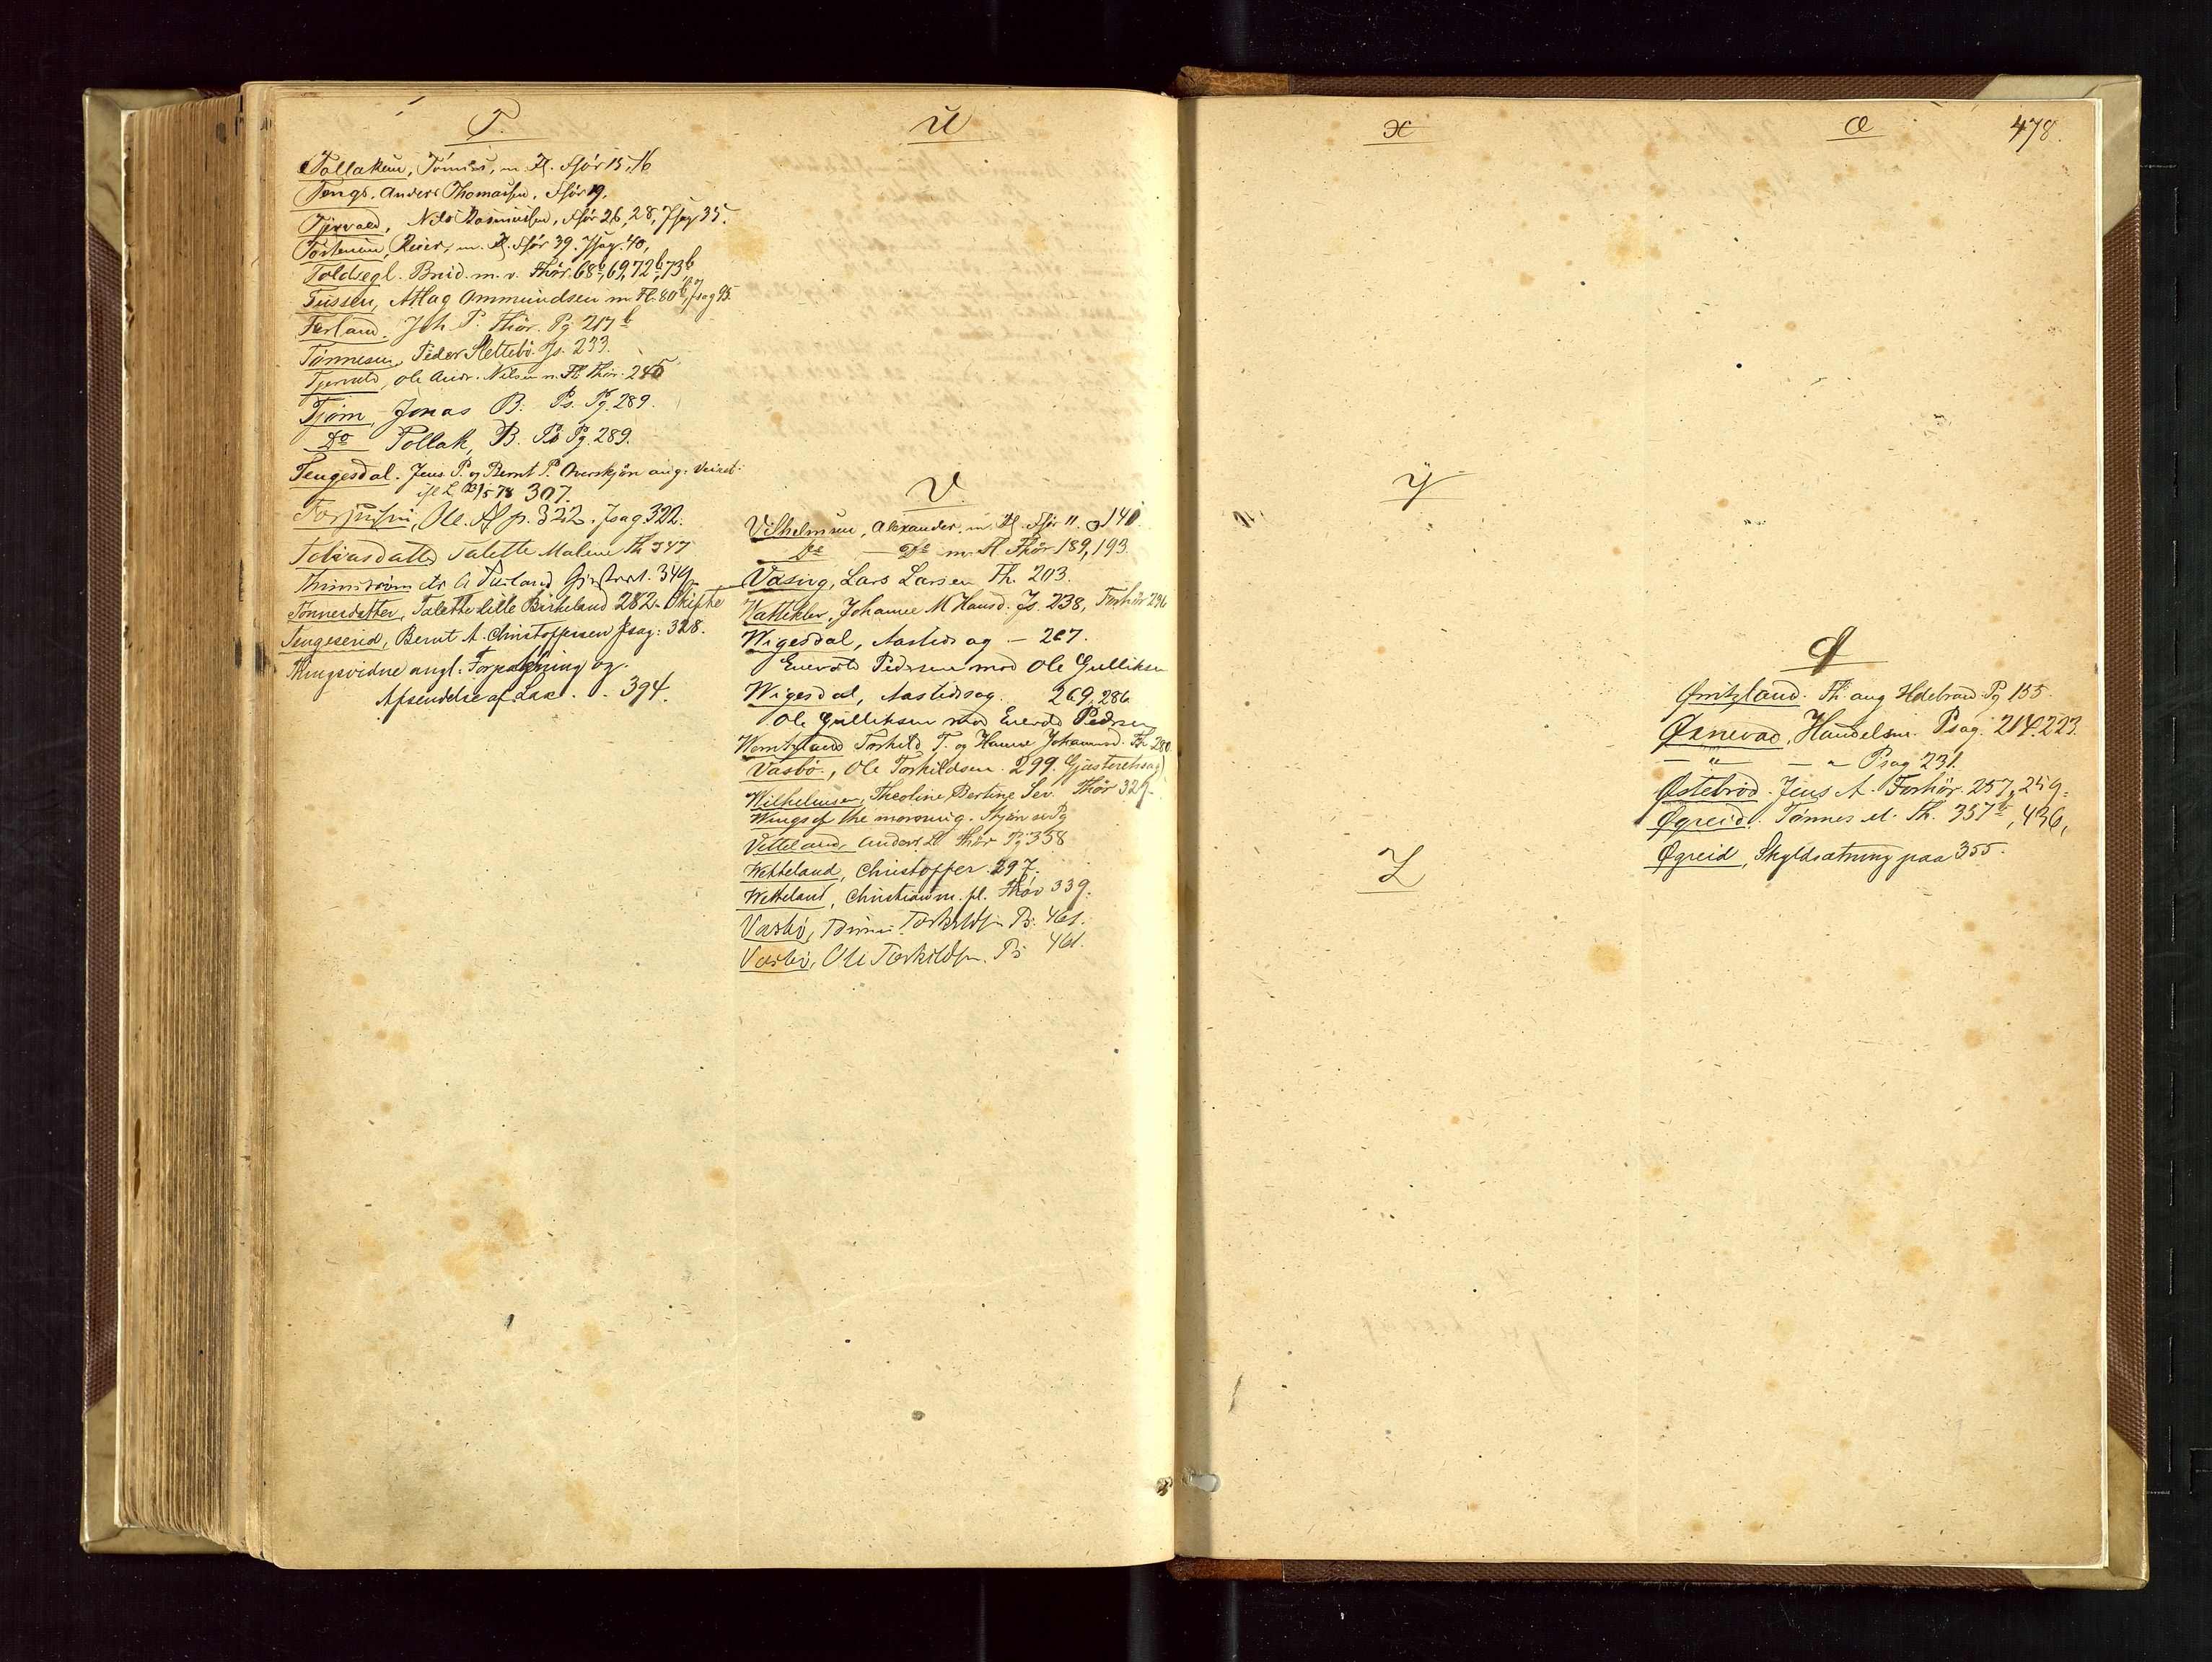 T.
Tollaksen, Tönnes, m. Fl. Fhör 15, 16
Tengs, Anders Thomassen, Fhör 19.
Tjervald, Nils Rasmussen, Fhör 26, 28, Jsag 35.
Reier, m. Fl. Fhör 39. Jsag. 40,
Toldregl. Brud. m. v. Fhör. 68b, 69, 72b, 73b
Tussen, Atlag Ommundsen m. Fl. 80b, Jsag 95.
Tærland. Joh. P. Fhör. Pg 217b
Tönnesen, Peder Slettebö. Js. 233.
Tjervald, Ole Andr. Nilsen m. Fl. Fhör. 245
Tjöm, Jonas B. Ps. Pg. 289.
Do Tollak, B. Ps Pg. 289.
Tengesdal. Jens P. og Bernt P. Overskjön ang. Veiarb.
307.
Ole. p. 322. Jsag 322.
Tobiasdatter Talette Malene Fh 347
A Tuiland Gjestret. 349
Tönnesdatter, Talette Lille Birkeland 282. Skifte
Tengesend, Bernt A. Christoffersen Jsag: 328.
Thingsvidne angl. Forpakning og
Afsendelse af Lax. . . 394.
U
V.
Vilhelmsen, Alexander, m. Fl. Fhör 11. og 140.
Do — Do m. Fl. Fhör 189, 193.
Vasing, Lars Larsen Fh. 203.
Johanne M Hansd. Js. 238, Forhör 236
Wigesdal, Aastedsag — 267.
Enevold Pedersen mod Ole Gulliksen
Wigesdal, Aastedsag. 269, 286
Ole Gulliksen mod Enevold Pedersen
Torkild T. og Hanne Johannesd. Fh 280
Vasbö, Ole Torkildsen. 299. Gjesteretssag
Wilhelmsen, Theoline Bertine Sev. Fhör 329.
Wings of the morning. Skjön se Pg
Vetteland Anders L. Fhör Pg 358
Wetteland, Christoffer. 297.
Wetteland, Christian m. fl. Fhör 339.
Vasbö, Torkildsen Ps. 461.
Vasbö, Ole Torkildsen. Ps 461.
X
Y
Z
Æ
478.
Ø
Fh. ang Ildebrand. Pg 155.
Øxnevad, Handelsm. Psag. 214. 223.
— " — — " Psag 231.
Østebröd. Jens A. Forhör. 257, 259.
Øgreid. Tönnes M. Fh. 357b, 436,
Øgreid, Skyldsætning paa 355.